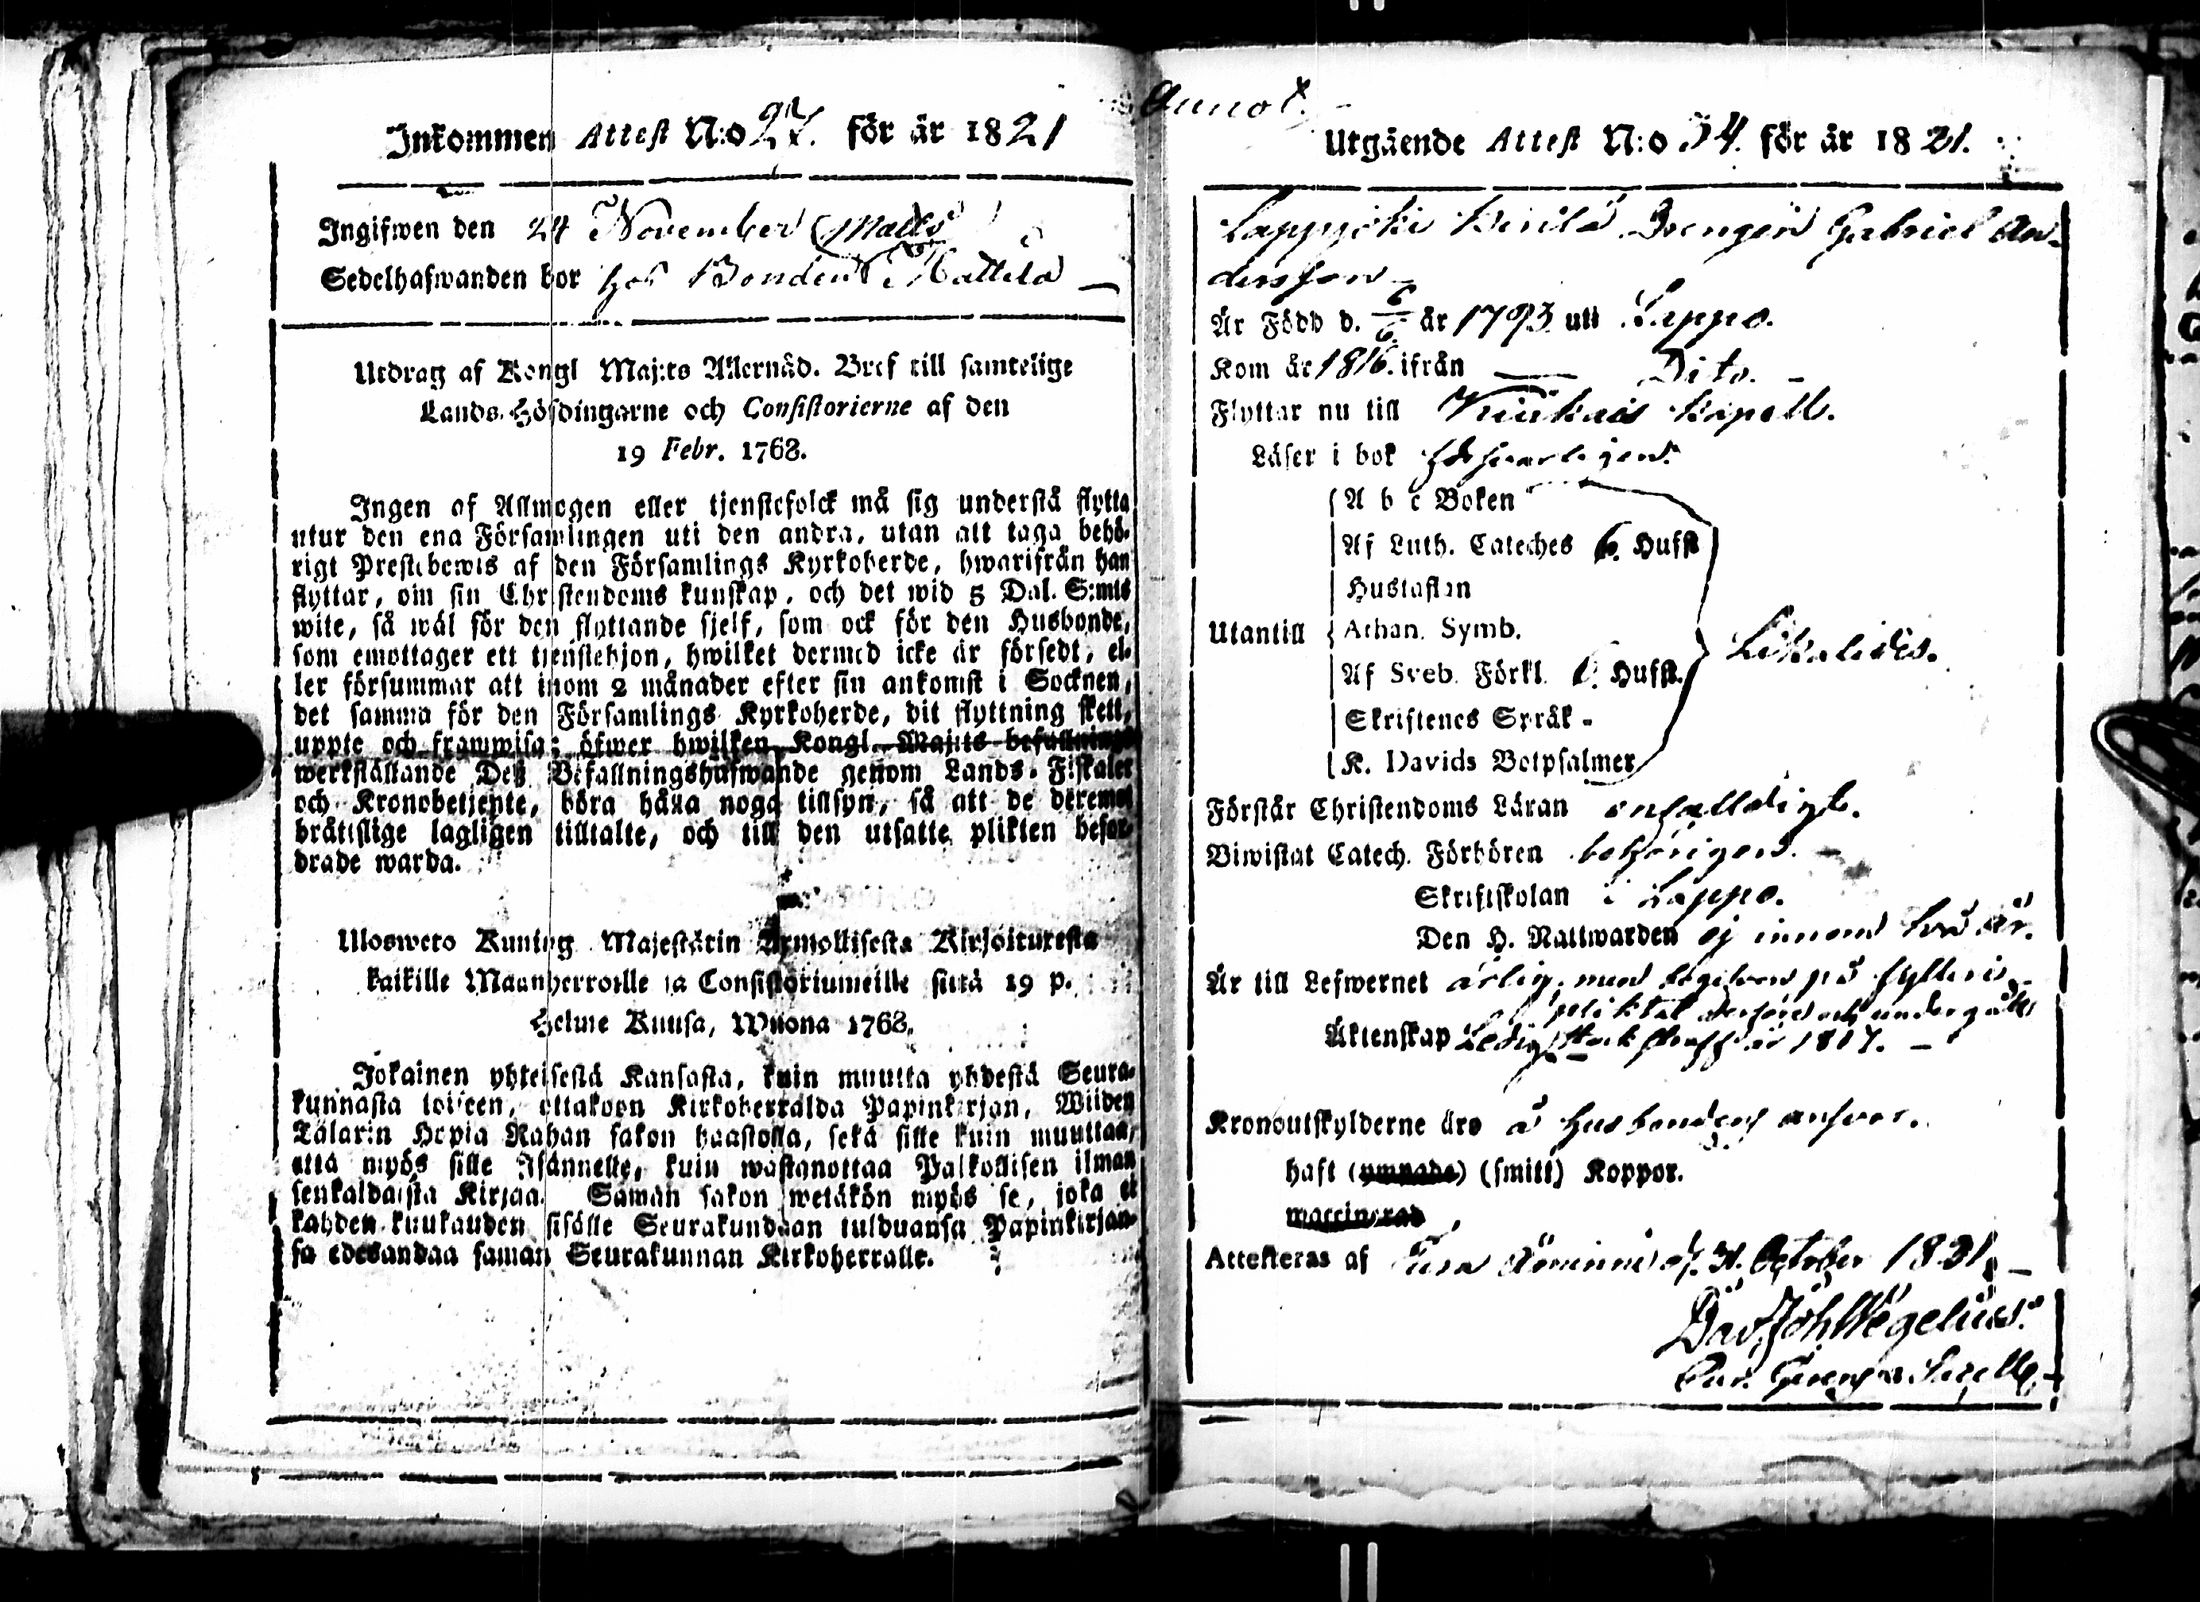 Inkommen Attest N:o 27. för år 1821
Ingifwen den 24 November (Matts
Sedelhafwanden bor hos Bonden Mattila
Utdrag af Kongl Maj:ts Allernåd. Bref till samtelige
Lands-Höfdingarne och Consistorierne af den
19 Febr. 1768.
Ingen af Allmogen eller tjenstefolck må sig understå flytta
utur den ena Församlingen uti den andra, utan att taga behö-
rigt Prestebewis af den Församlings Kyrkoherde, hwarifrån han
flyttar, om sin Christendoms kunskap, och det wid 5 Dal. S:mts
wite, så wäl för den flyttande sjelf, som ock för den Husbonde,
som emottager ett tjenstehjon, hwilket dermed icke är försedt, el-
ler försummar att inom 2 månader efter sin ankomst i Socknen,
det samma för den Församlings Kyrkoherde, dit flyttning skett,
uppte och framwisa; öfwer hwilken Kongl. Maj:ts befallnings
werkställande Deß Befallningshafwande genom Lands-Fiskaler
och Kronobetjente, böra hålla noga tillsyn, så att de deremot
bråttslige lagligen tilltalte, och till den utsatte plikten befor-
drade warda.
Ulosweto Kuning Majestätin Armollisesta Kirjoituresta
kaikille Maanherroille ja Consistoriumeille siitä 19 p.
Helme Kuusa, Wuona 1768.
Jokainen yhteisestä Kansasta, kuin muutta yhdestä Seura-
kunnasta toiseen, ottakoon Kirkoherralda Papinkirjan, Wiiden
Talarin Hopia Rahan sakon haastolla, sekä sille kuin muuttaa,
että myös sille Isännelle, kuin wastanottaa Palkollisen ilman
senkaldaista Kirjaa. Saman sakon wetäkön myös se, joka ei
kahden kuukauden sisälle Seurakundaan tulduansa Papinkirjan-
sa edesandaa saman Seurakunnan Kirkoherralle.
Annot.
Utgående Attest N:o 54. för år 1821.
Lappjoki Drengen Gabriel An-
dersson
Är Född d. 6/6 år 1793 uti Lappo.
Kom år 1816. ifrån — Dito.
Flyttar nu till Kapell.
Läser i bok försvarligen.
Utantill
A b c Boken
Af Luth. Cateches 6. Hufst
Hustaflan
Athan. Symb.
Af Sveb. Förkl. 6. Hufst.
Skriftenes Språk -
K. Davids Botpsalmer
Likaledes.
Förstår Christendoms Läran enfalldigt.
Biwistat Catech. Förhören behörigen.
Skriftskolan i Lappo.
Den H. Nattwarden ej innom två år.
Är till Lefwernet ärlig, men begifven på fylleri
pliktat derföre och undergått
Äktenskap Ledig, straff år 1817.
Kronoutskylderne äro å husbondens ansvar.
haft (ympade) (smitt) Koppor.
waccinerad
Attesteras af d. 31. October 1821.
Dav. Joh. Wegelius.